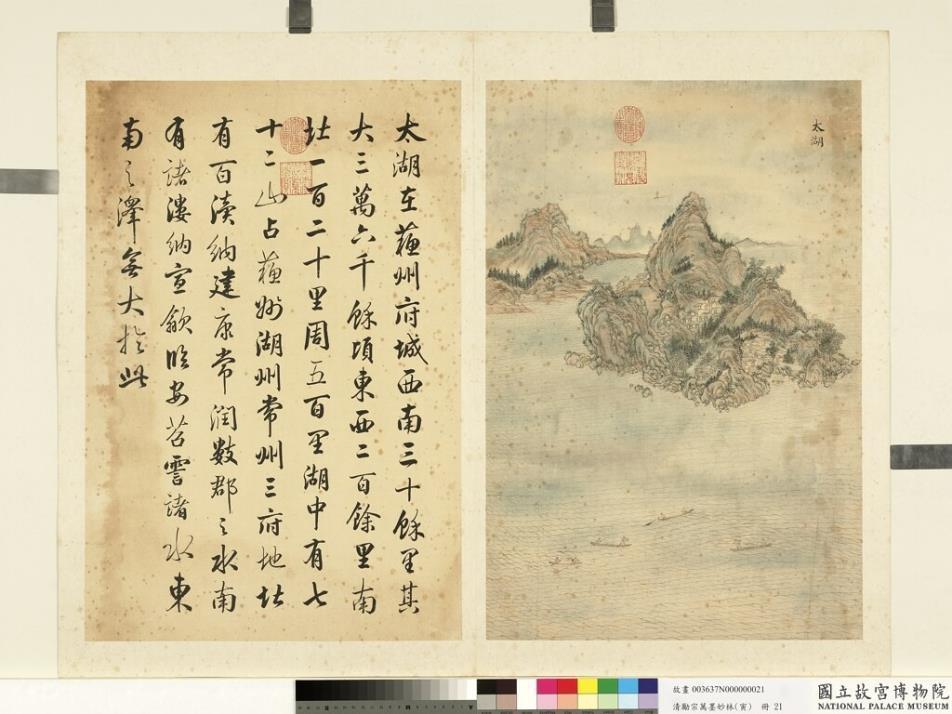 太湖
太湖在蘇州府城西南三十餘里其
大三萬六千餘頃東西二百餘里南
北一百二十里周五百里湖中有七
十二山占蘇州湖州常州三府地北
有百瀆納建康常潤數郡之水南
有諸漊納宣歙臨安苕霅諸水東
南之澤無大於此
故畫 003637N000000021
清勵宗萬墨妙林(寅) 冊 21
國立故宮博物院
NATIONAL PALACE MUSEUM